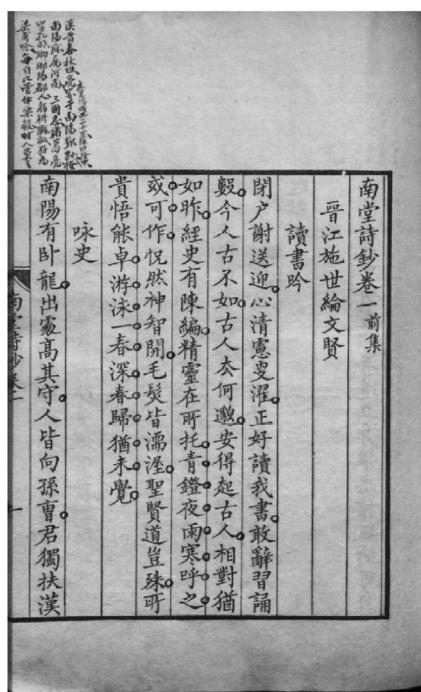 南堂詩鈔卷一 前集
晉江施世綸文賢
讀書吟
閉户謝送迎心清慮叟濯正好讀我書敢辭習誦
數今人古不如古人去何邈安得起古人相對猶
如昨經史有陳編精靈在所托青鐙夜雨寒呼之
或可作怳然神智開毛髮皆濡渥聖賢道豈殊所
貴悟能卓游泳一春深春歸猶未覺
咏史
南陽有卧龍出處高其守人皆向孫曹君獨扶漢
南堂詩鈔卷一
一
漢晉春秋曰亮家于南陽
南陽 三國志諸葛亮